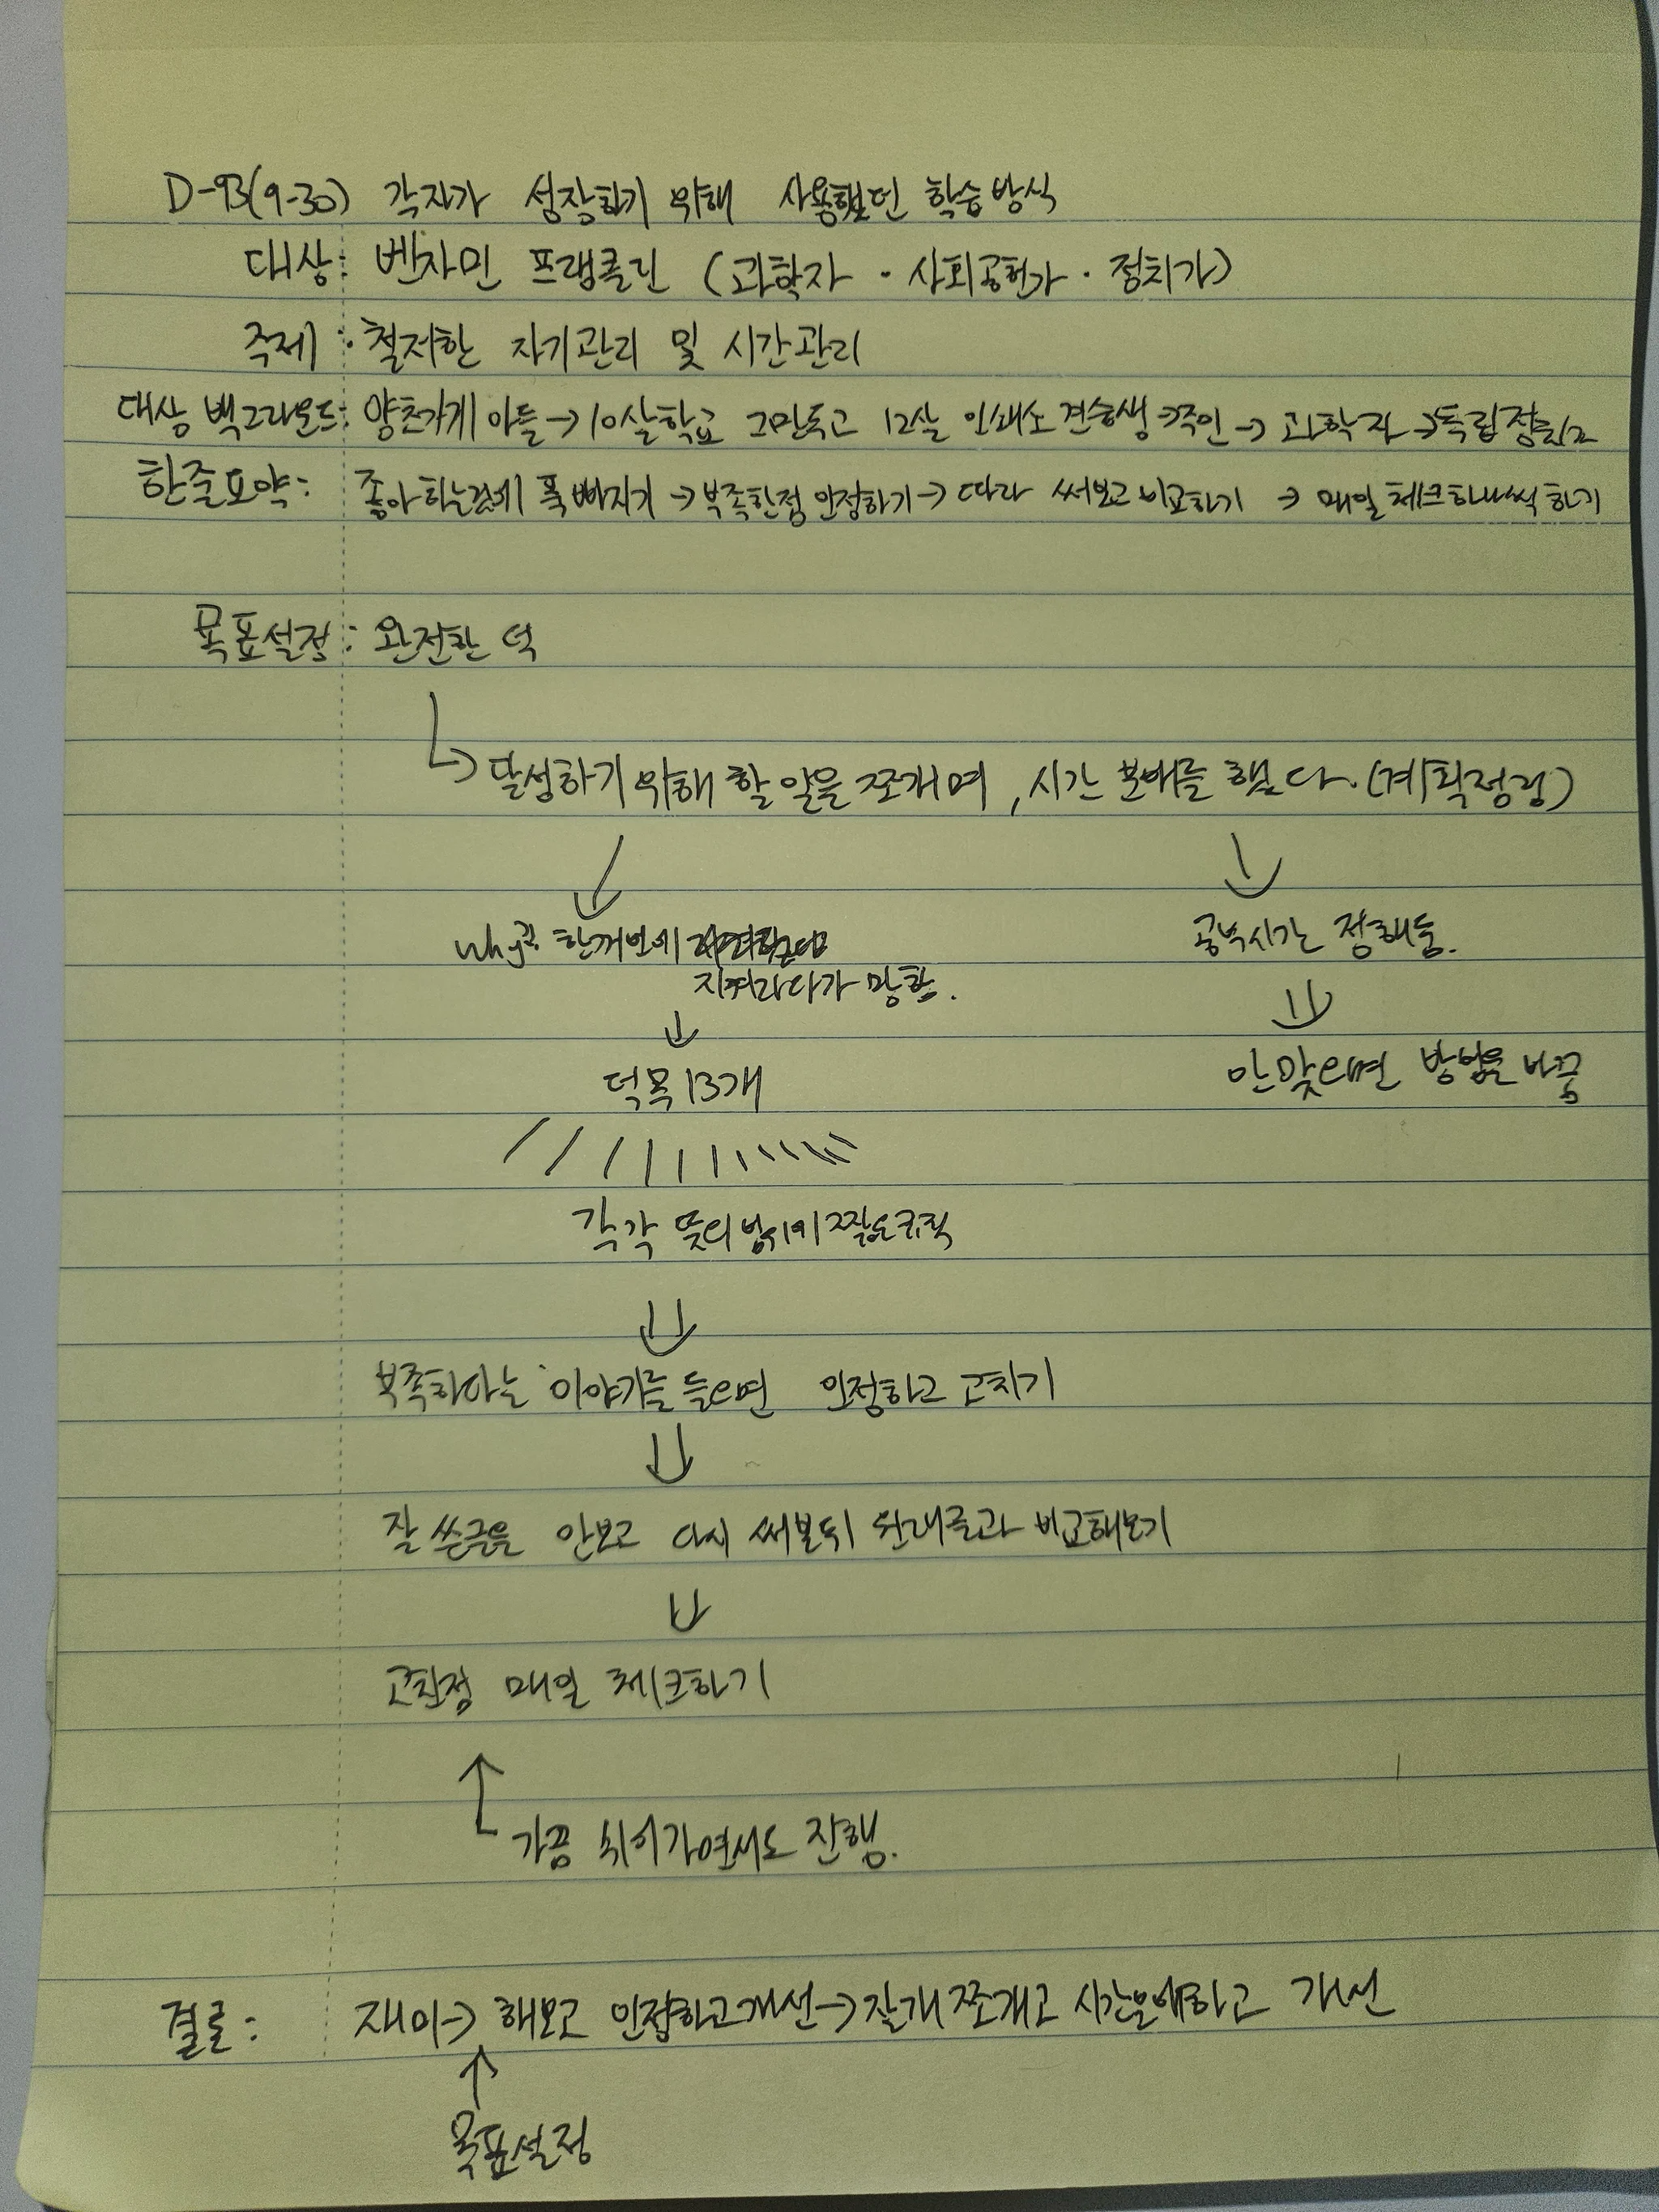 D-93(9-30) 각자가 성장하기 위해 사용했던 학습방식
대상: 벤자민 프랭클린 (과학자 · 사회공헌가 · 정치가)
주제: 철저한 자기관리 및 시간관리
대상 백그라운드: 양초가게 아들→10살학교 그만두고 12살 인쇄소 견습생→주인→ 과학자→독립
한줄요약: 좋아하는것에 푹 빠지기→부족한점 인정하기→ 따라 써보고 비교하기 → 매일 체크하나씩 하기
목표설정: 완전한 덕
↳ 달성하기 위해 할 일을 쪼개며, 시간 분배를 했다. (계획정렬)
why? 한꺼번에
지켜라다가 망함.
공부시간 정해둠.
↓
덕목 13개
안맞으면 방법을 바꿈
각각 뜻의 범위가 짧도록
부족하다는 이야기를 들으면 인정하고 고치기
잘 쓴글을 안보고 다시 써본뒤 원래글과 비교해보기
고친점 매일 체크하기
가끔 쉬어가면서도 진행.
결론: 재미→ 해보고 인정하고개선→잘개 쪼개고 시간분배하고 개선
↑
목표설정